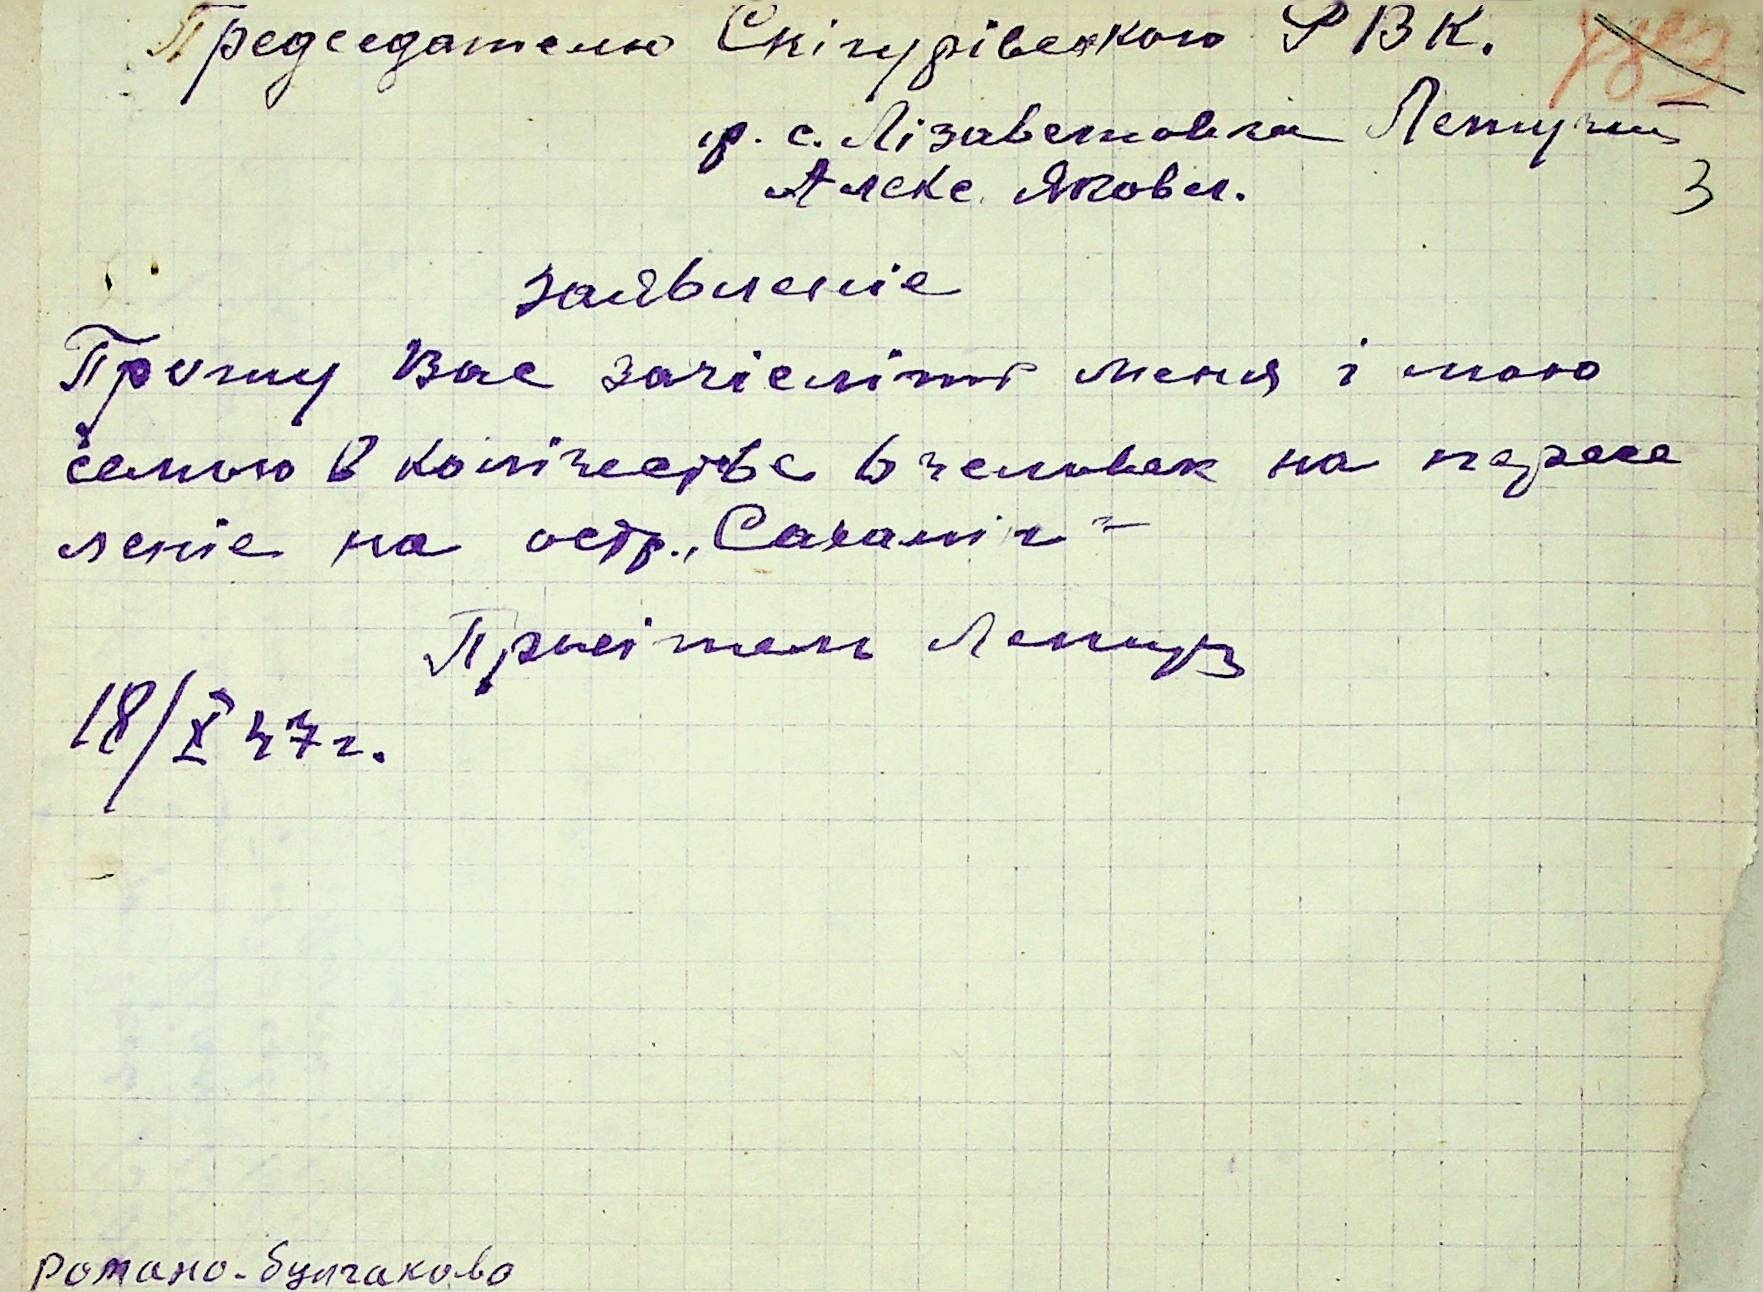 Председателю Снігурівского РВК.
гр. с. Лізаветовка Летучий
Алекс. Яковл.
3
заявленіе
Прошу Вас зачіслiть меня і мою
семью в колічестве 6 человек на пересе
леніе на остр. „Сахалін"
Просітель Летуч
18/X 47 г.
романо-булгаково